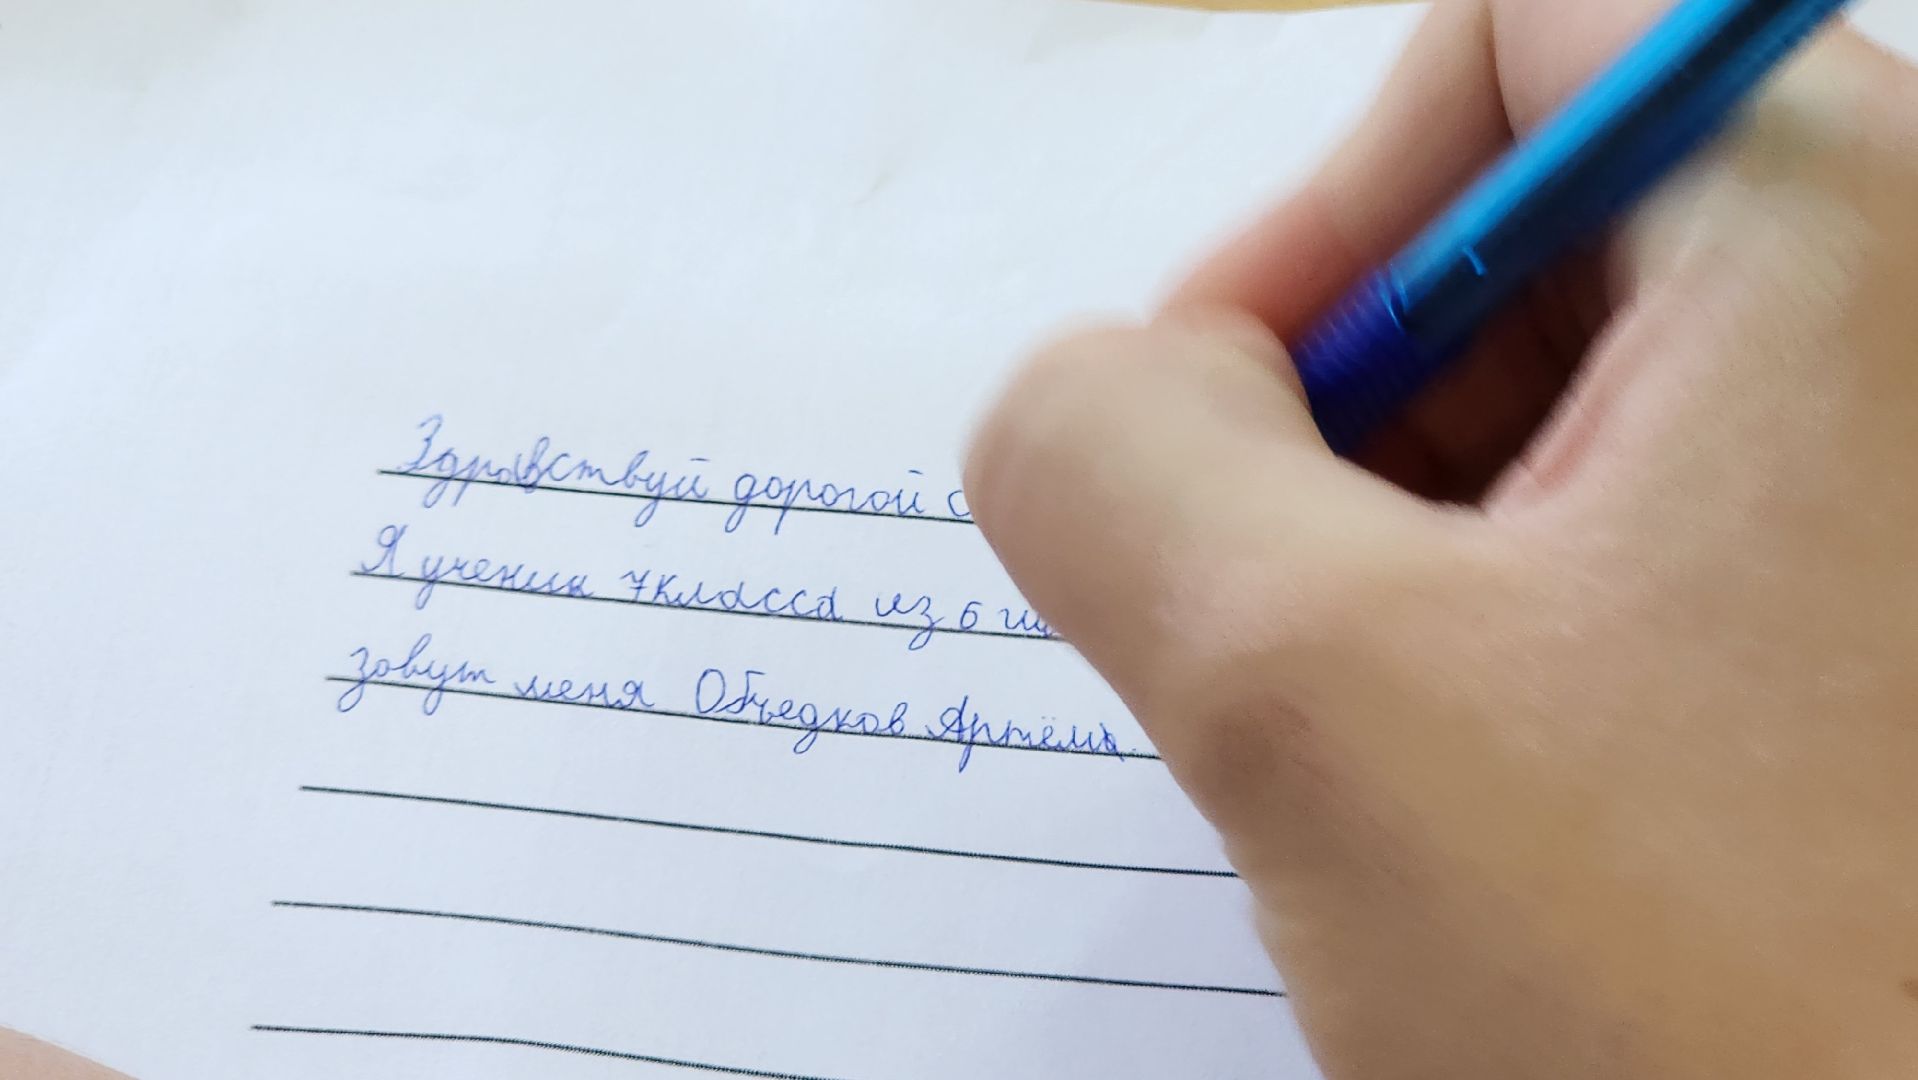 Здравствуй дорогой
Я ученик 7класса из 6
зовут меня Объедков Артём